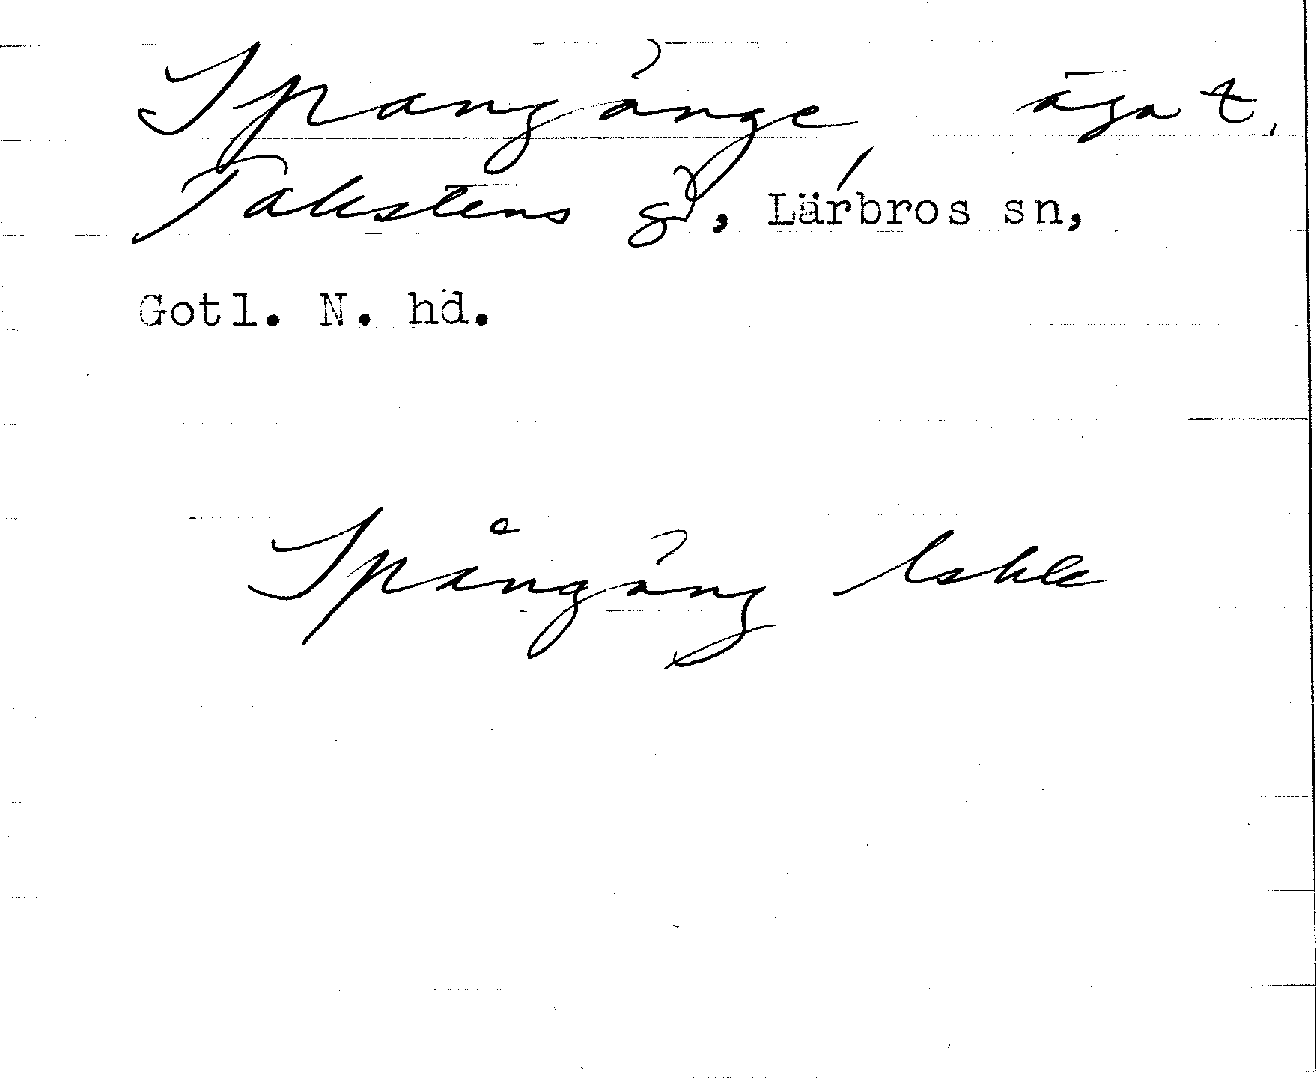 Spangänge, äga t.
Takstens gd, Lärbros sn,
Gotl. N. hd.
Spångäng lskk